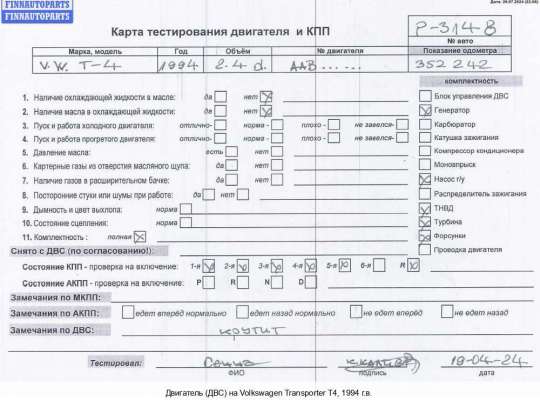 FINNAUTOPARTS
FINNAUTOPARTS
Карта тестирования двигателя и КПП
P-3148
№ авто
Марка, модель Год Объём № двигателя Показание одометра
V.W. T-4 1994 2.4 d. AAB...... 352 242
комплектность
1. Наличие охлаждающей жидкости в масле: да нет
2. Наличие масла в охлаждающей жидкости: да нет
3. Пуск и работа холодного двигателя: отлично- норма - плохо - не завелся-
4. Пуск и работа прогретого двигателя: отлично- норма - плохо - не завелся-
5. Давление масла: есть нет
6. Картерные газы из отверстия масляного щупа: да нет
7. Наличие газов в расширительном бачке: да нет
8. Посторонние стуки или шумы при работе: да нет
9. Дымность и цвет выхлопа: норма
10. Состояние сцепления: норма
11. Комплектность : полная
Блок управления ДВС
Генератор
Карбюратор
Катушка зажигания
Компрессор кондиционера
Моновпрыск
Насос г/у
Распределитель зажигания
ТНВД
Турбина
Форсунки
Проводка двигателя
Снято с ДВС (по согласованию!):
Состояние КПП - проверка на включение: 1-я 2-я 3-я 4-я 5-я 6-я R
Состояние АКПП - проверка на включение: P R N D
Замечания по МКПП:
Замечания по АКПП: едет вперёд нормально едет назад нормально не едет вперёд не едет назад
Замечания по ДВС: крутит
Тестировал: 19-04-24
ФИО подпись дата
Двигатель (ДВС) на Volkswagen Transporter T4, 1994 г.в.